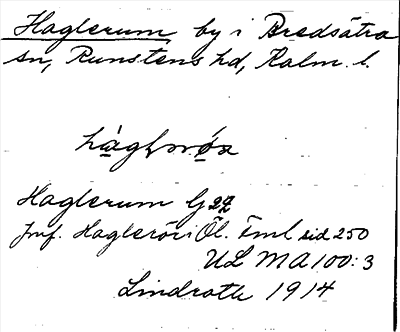 Haglerum by i Bredsätra
sn, Runstens hd, Kalm. l.
Haglerum G 22
Jmf. Haglerör i Öl. Fml sid 250
UL MA 100:3
Lindroth 1914